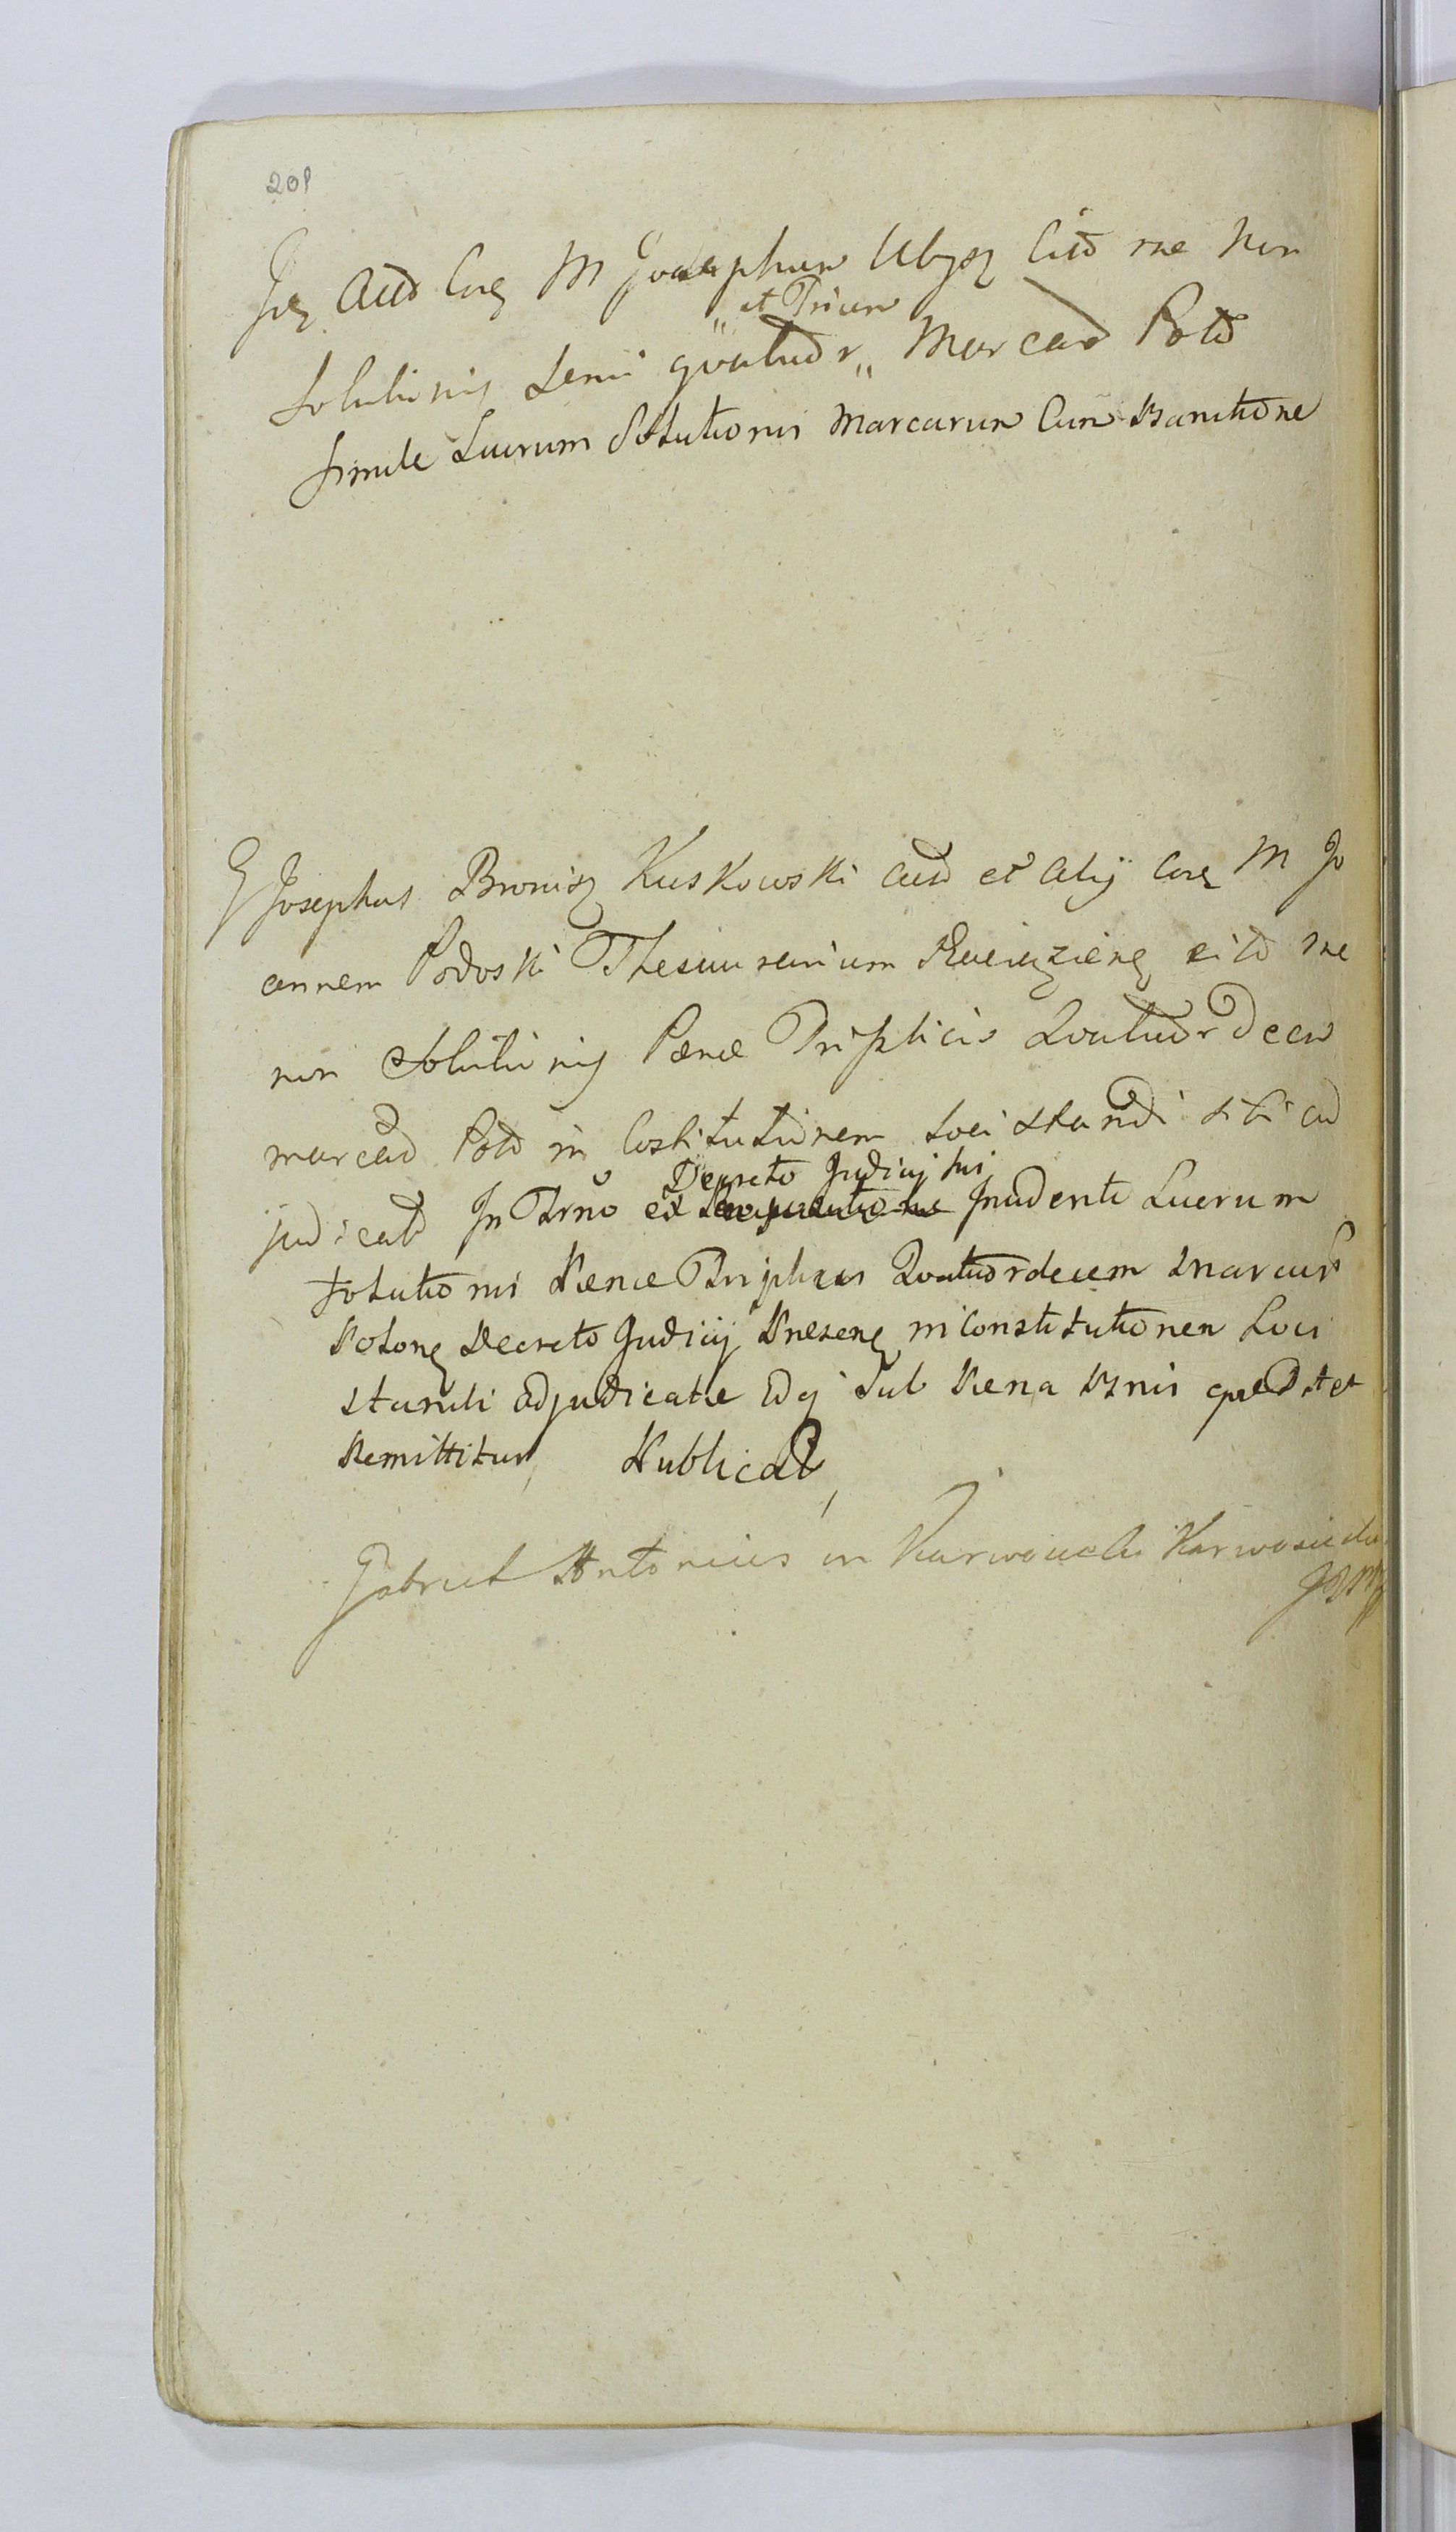 201
Idz Actō Corz M Josephum Ubysz Citō rne non
Solutionis Semi qvatuōr „ et Trium „ Marcarō Polō
simile Lucrum Solutionis Marcarum Cum Banitione
Josephus Bronisz Kuskowski Actō et Alij Corz M Jo
annem Podoski Thesaurarium Raciązienz citō rne
non Solutionis Pænæ Triplicis Qvatuōrdecim
marcarō Polō in Constitutionem loci standi sibi ad
judicatō In Trno ex Decreto Judicij sui Incidenti Lucrum
Solutionis Pænæ Triplicis Qvatuordecim Marcarō
Polonz Decreto Judicij Pnesenz in Constitutionem Loci
standi adjudicatæ Idq Sub Pæna Bnis
Remittitur, Publicatō
Gabriel Antonius in